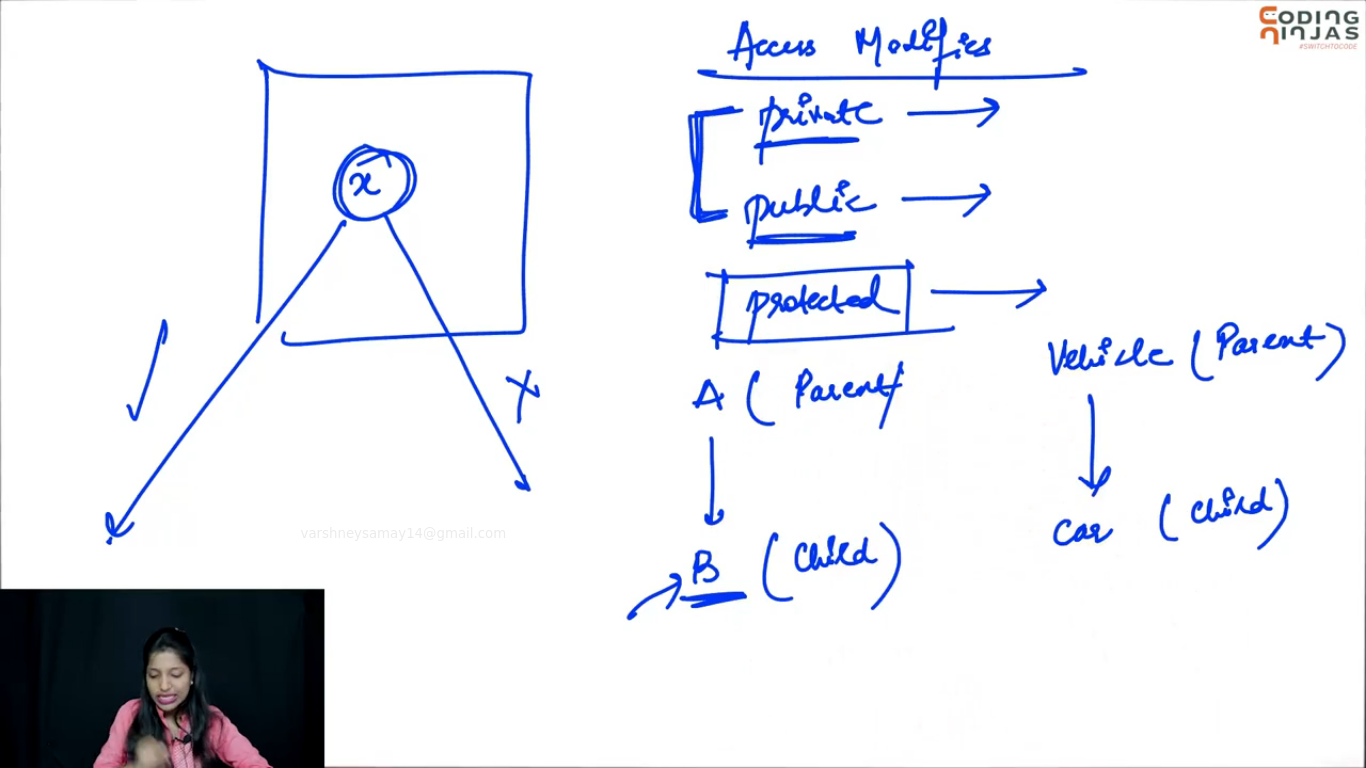 CODING
NINJAS
#SWITCHTOCODE
Access Modifies
private
public
protected
x
X
Vehicle (Parent)
A (Parent)
Car (Child)
B (Child)
varshneysamay14@gmail.com